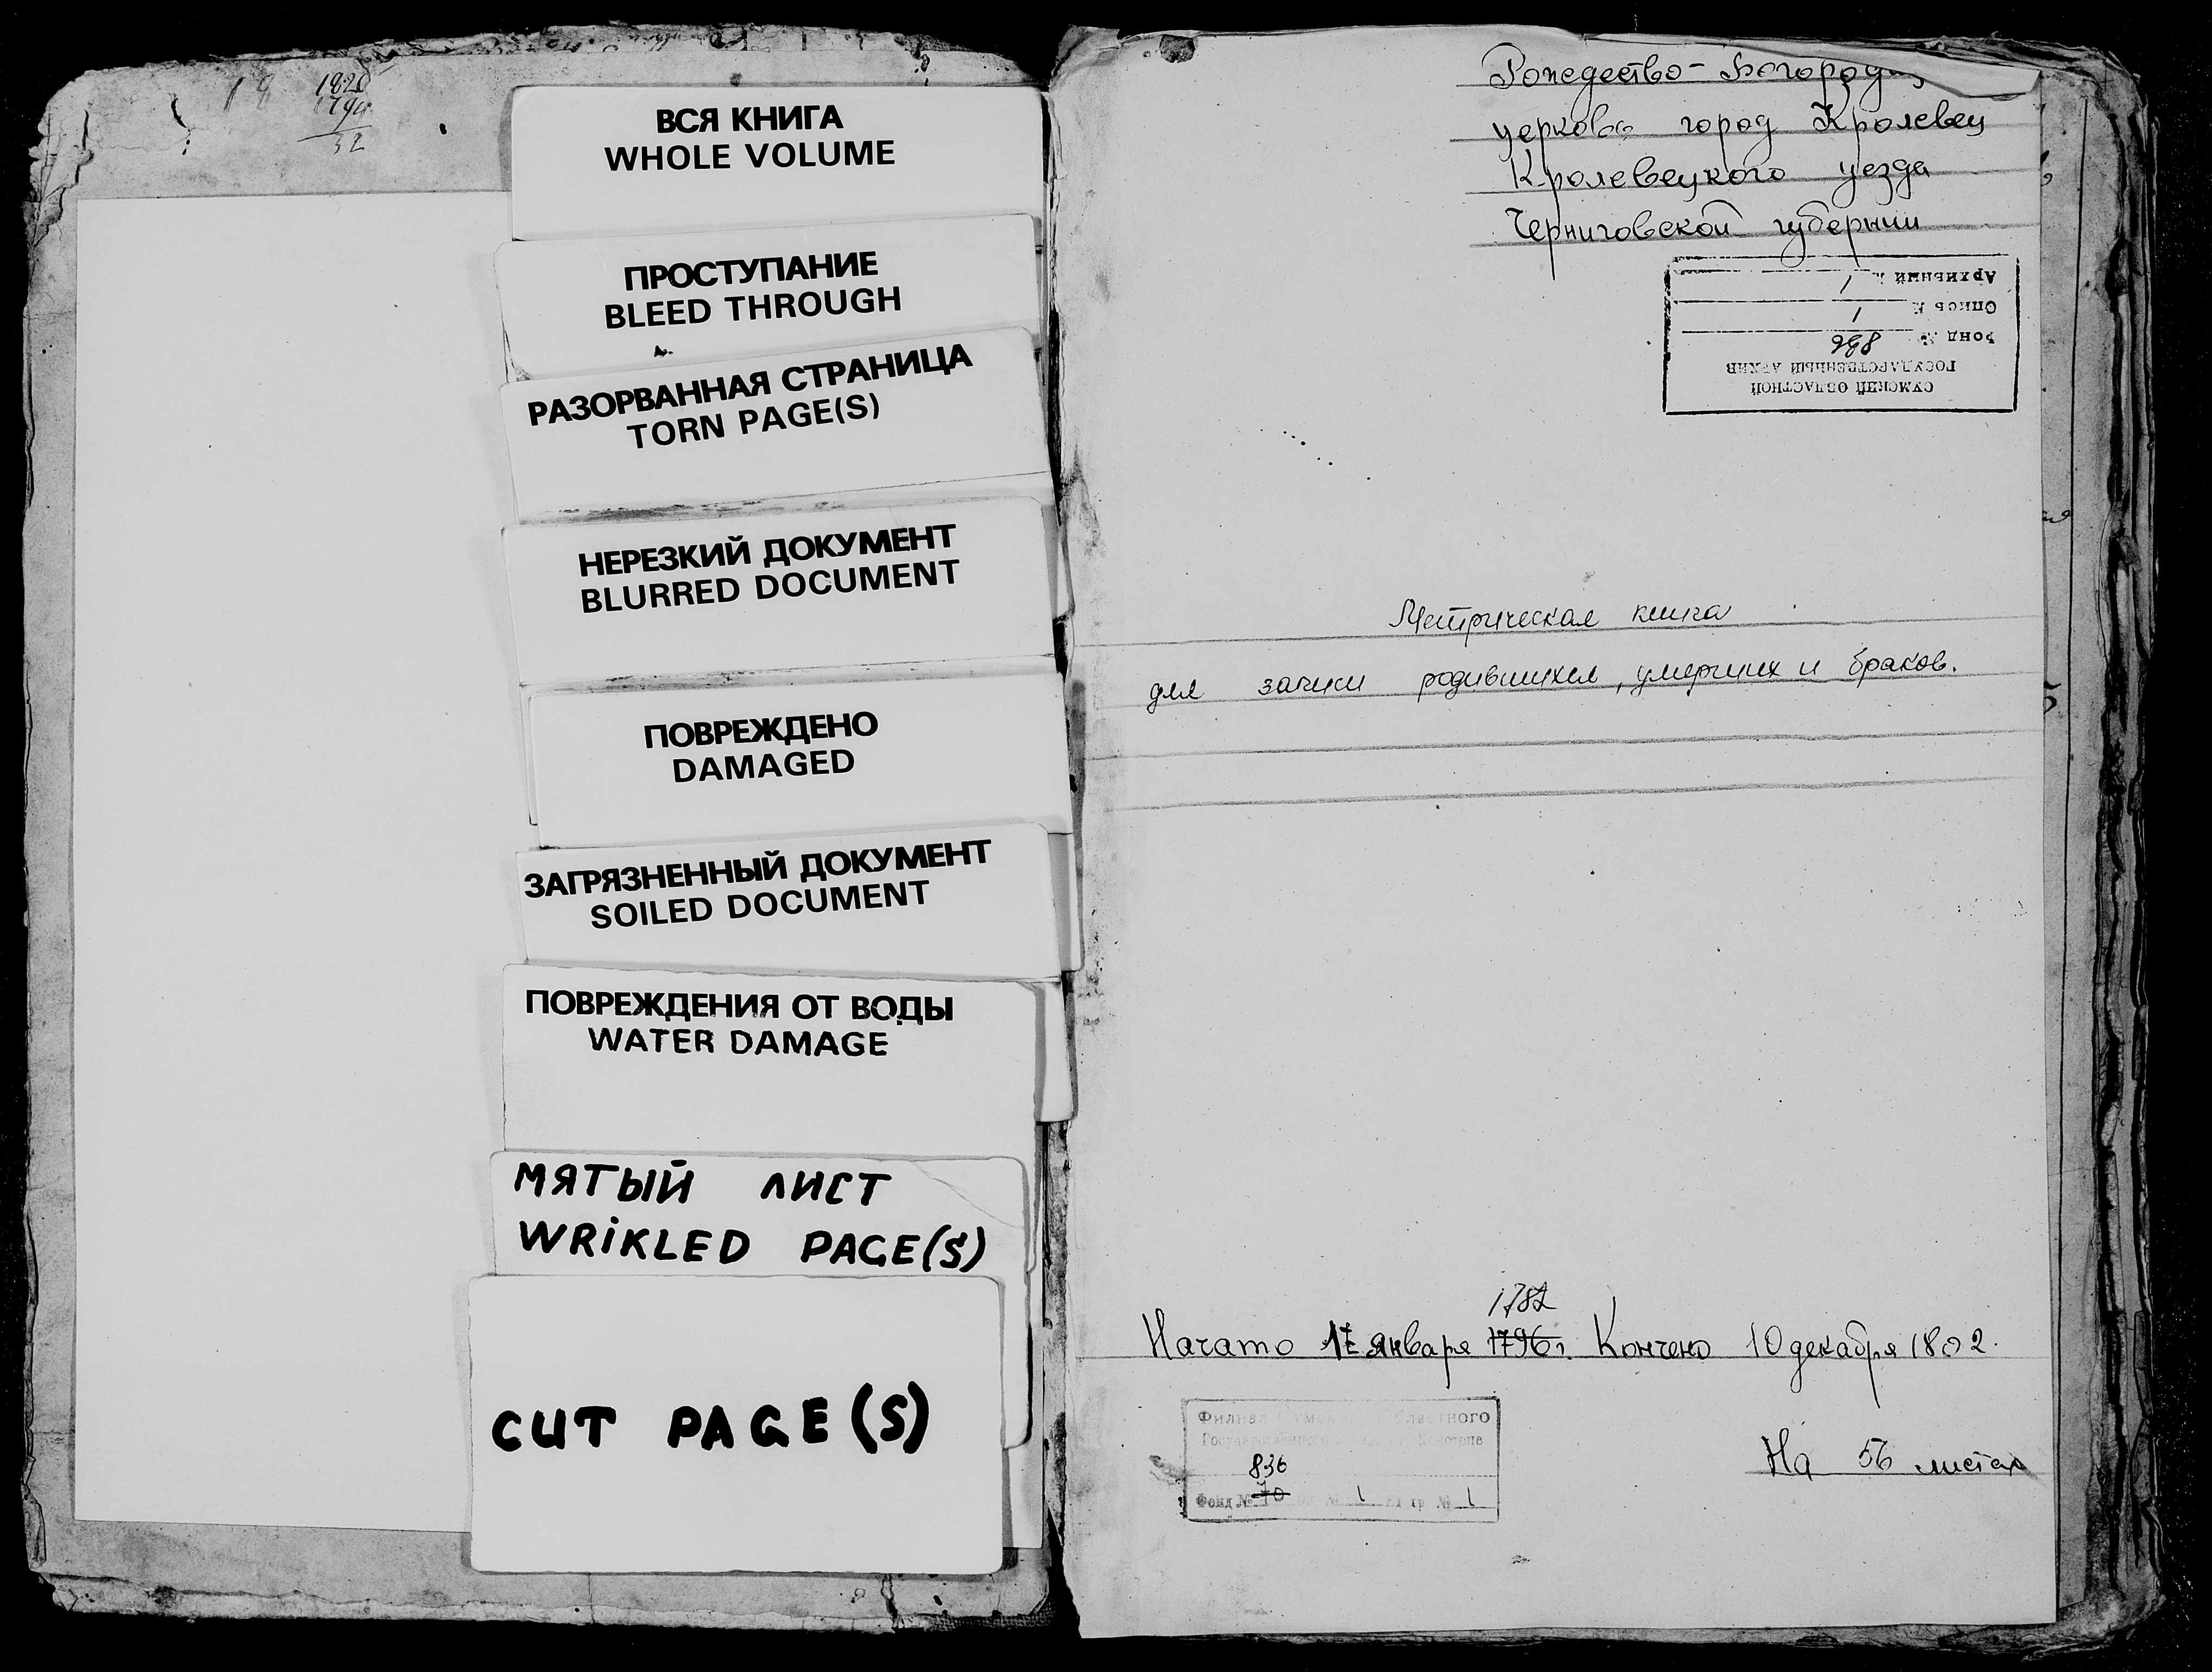 18 1820
1794
32
ВСЯ КНИГА
WHOLE VOLUME
ПРОСТУПАНИЕ
BLEED THROUGH
РАЗОРВАННАЯ СТРАНИЦА
TORN PAGE(S)
НЕРЕЗКИЙ ДОКУМЕНТ
BLURRED DOCUMENT
ПОВРЕЖДЕНО
DAMAGED
ЗАГРЯЗНЕННЫЙ ДОКУМЕНТ
SOILED DOCUMENT
ПОВРЕЖДЕНИЯ ОТ ВОДЫ
WATER DAMAGE
МЯТЫЙ ЛИСТ
WRIKLED PAGE(S)
CUT PAGE(S)
Рождество-Богородиц
церковь город Кролевец
Кролевецкого уезда
Черниговской губернии
СУМСКИЙ ОБЛАСТНОЙ
ГОСУДАРСТВЕННЫЙ АРХИВ
Фонд № 836
Опись № 1
Архивный № 1
Метрическая книга
для записи родившихся, умерших и браков.
1782
Начато 17 января 1796 г. Кончено 10 декабря 1802.
На 56 листах
Филиал Сумского Областного
Государственного Конотопе
836
Фонд № 70 1 № 1